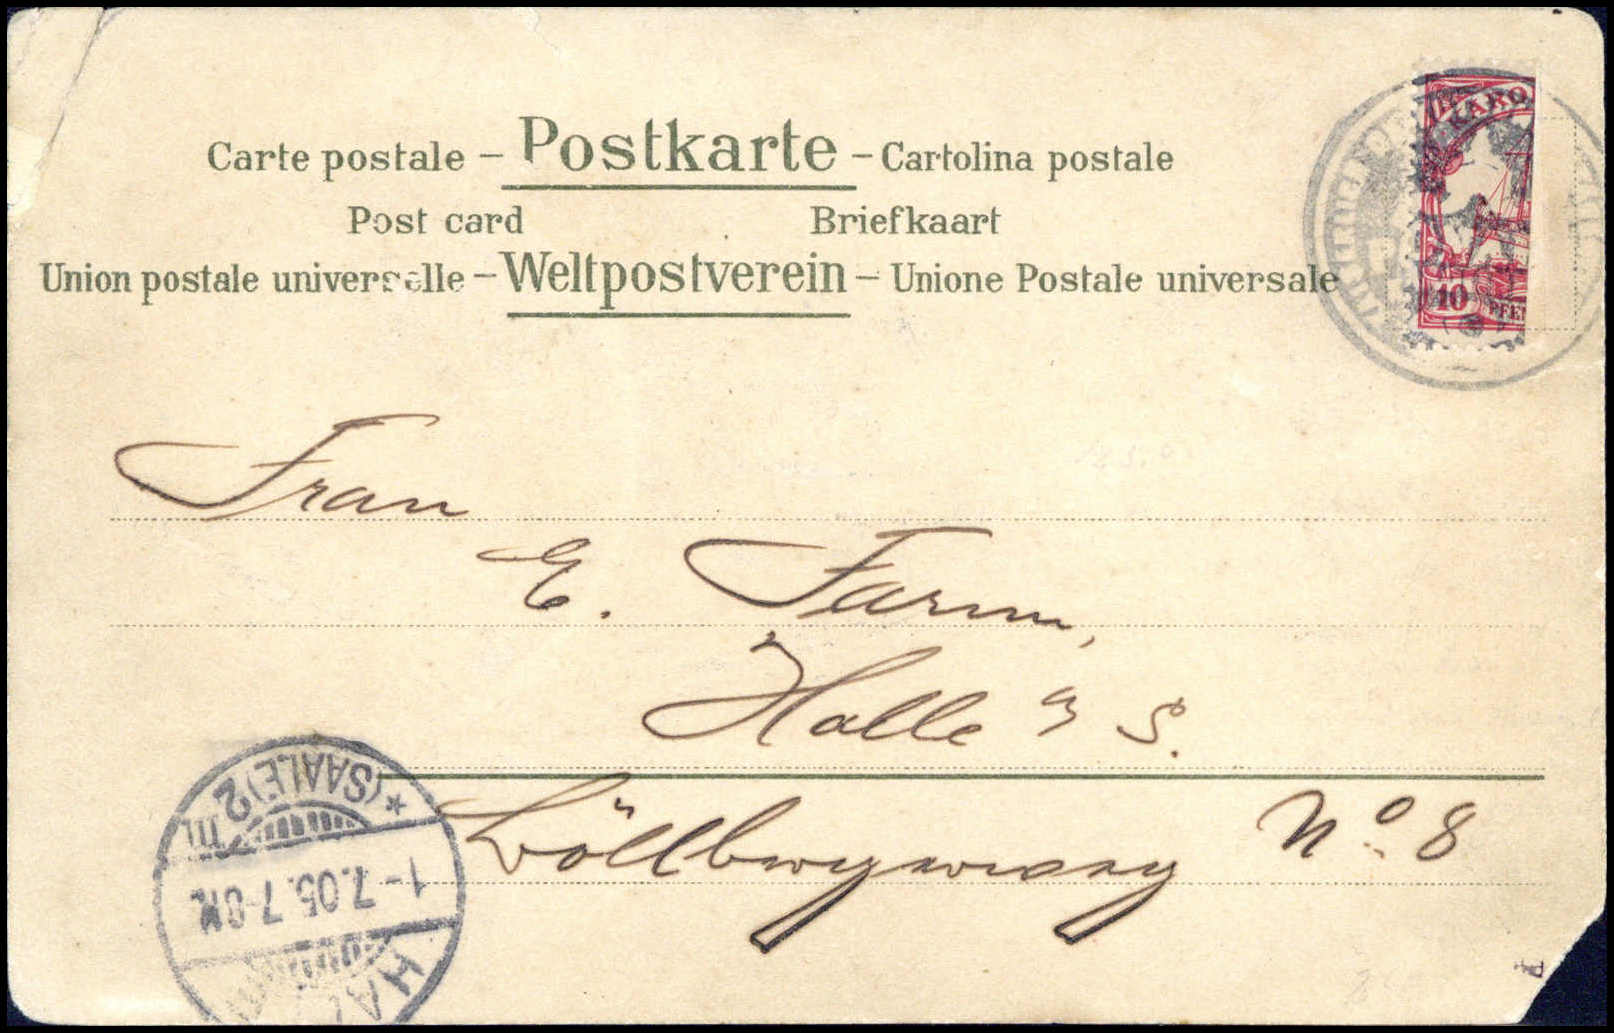 Carte postale – Postkarte – Cartolina postale
Post card Briefkaart
Union postale universelle – Weltpostverein – Unione Postale universale
KARO
10 PFEN
Frau
E. Farm,
Halle a S.
No. 8
HAL
1-7.05.7-8N.
* (SAALE) 2 III